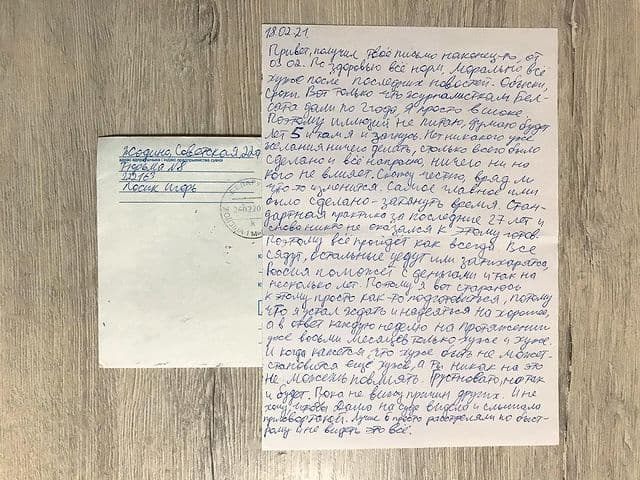 Жодино, Советская, 22а
Тюрьма №8
222163
Лосик Игорь
18.02.21
Привет, получил твоё письмо наконец-то, от
02. По здоровью всё норм, морально всё
хуже после последних новостей. Обыски,
сроки. Вот только что журналисткам Бел-
сата дали по 2 года. Я просто в шоке.
Поэтому иллюзий не питаю, думаю будет
лет 5 и каля и запису. Нет никакого уже
желания ничего делать, столько всего было
сделано и всё напрасно, ничего ни на
кого не влияет. Скажу честно, вряд ли
что-то изменится. Самое главное ими
было сделано - затянуть время. Стан-
дартная практика за последние 27 лет и
снова никто не оказался к этому готов.
Поэтому всё пройдёт как всегда. Все
сядут, остальные уедут или затихарятся,
Россия поможет с деньгами и так на
несколько лет. Потому я вот стараюсь
к этому просто как-то подготовиться, потому
что я устал ждать и надеяться на хорошее,
а в ответ каждую неделю на протяжении
уже восьми месяцев только хуже и хуже.
И когда кажется, что хуже быть не может-
становится ещё хуже, а ты никак на это
не можешь повлиять. Грустновато, но так
и будет. Пока не вижу причин других. И не
хочу, чтобы Даша на суде видела и слышала
приговор такой. Лучше б просто расстреляли по быст-
рому и не видеть это всё.